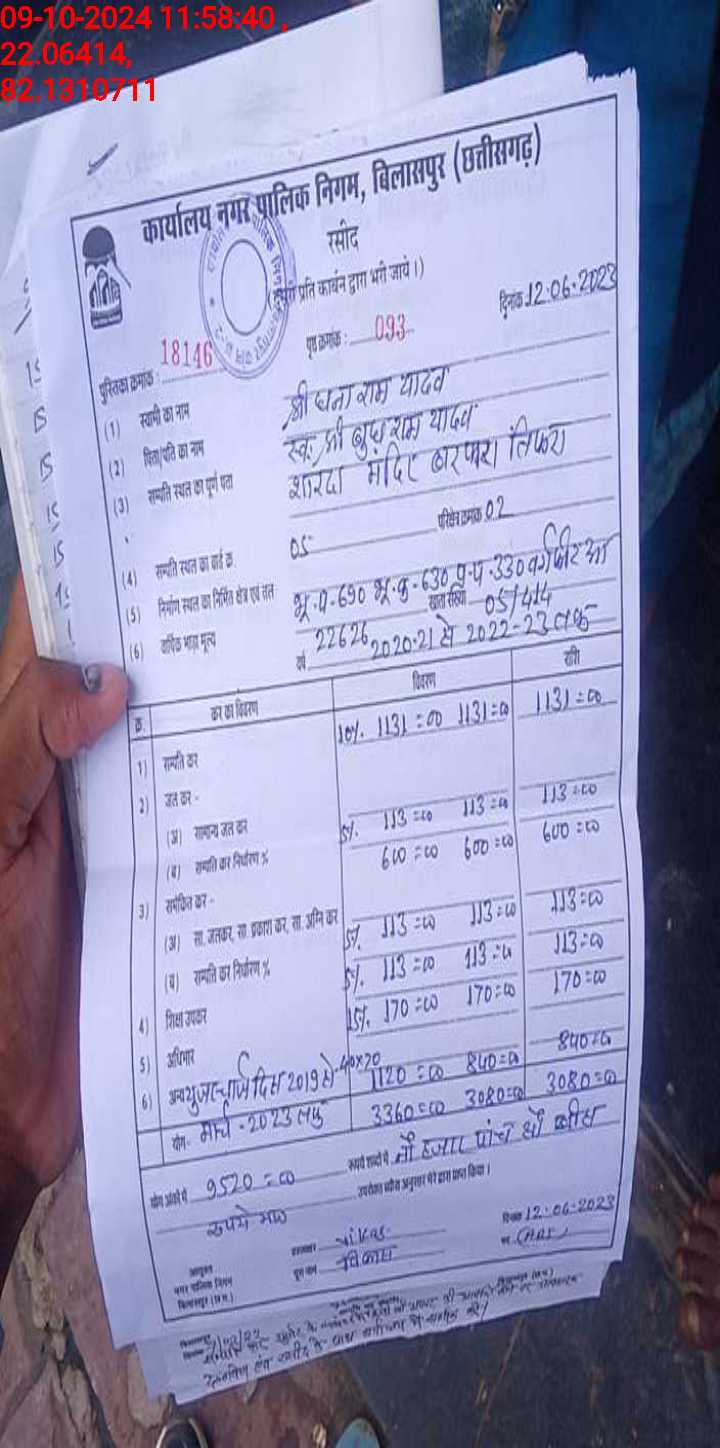 09-10-2024 11:58:40 ,
22.06414,
82.1310711
कार्यालय नगर पालिक निगम, बिलासपुर (छत्तीसगढ़)
रसीद
प्रति कार्बन द्वारा भरी जाये।)
दिनांक 12-06-2023
पुस्तिका क्रमांक : 18146 पृष्ठ क्रमांक : 093
(1) स्वामी का नाम श्री घना राम यादव
(2) पिता/पति का नाम स्व. श्री बुध राम यादव
(3) सम्पत्ति स्थल का पूर्ण पता शारदा मंदिर तिफरा
(4) सम्पत्ति स्थल का वार्ड क्र. 05 परिक्षेत्र क्रमांक 02
(5) निर्माण स्थल का निर्मित क्षेत्र एवं तल भू.प.-690 भू.कु.-630 330 वर्गफीट
(6) वार्षिक भाड़ा मूल्य 22626 खाता संख्या 05/414
वर्ष 2020-21 से 2022-23 तक
क्र. कर का विवरण विवरण राशि
1) सम्पत्ति कर 10%. 1131=00 1131=00 1131=00
2) जल कर -
(अ) सामान्य जल कर 5%. 113=00 113=00 113=00
(ब) सम्पत्ति कर निर्धारण % 600=00 600=00 600=00
3) समेकित कर -
(अ) सा. जलकर, सा. प्रकाश कर, सा. अग्नि कर 5%. 113=00 113=00 113=00
(ब) सम्पत्ति कर निर्धारण % 5%. 113=00 113=00 113=00
4) शिक्षा उपकर 15%. 170=00 170=00 170=00
5) अधिभार
6) अन्य यूजर चार्ज दिस 2019 से 40x70 1120=00 840=00 840=00
योग- मार्च-2023 तक 3360=00 3080=00 3080=00
योग अंकों में 9520=00 रूपये शब्दों में नौ हजार पांच सौ बीस
रूपये मात्र उपरोक्त ब्यौरा अनुसार मेरे द्वारा प्राप्त किया।
दिनांक 12-06-2023
हस्ताक्षर Vikas
पूरा नाम विकास
आयुक्त
नगर पालिक निगम
बिलासपुर (छ.ग.)